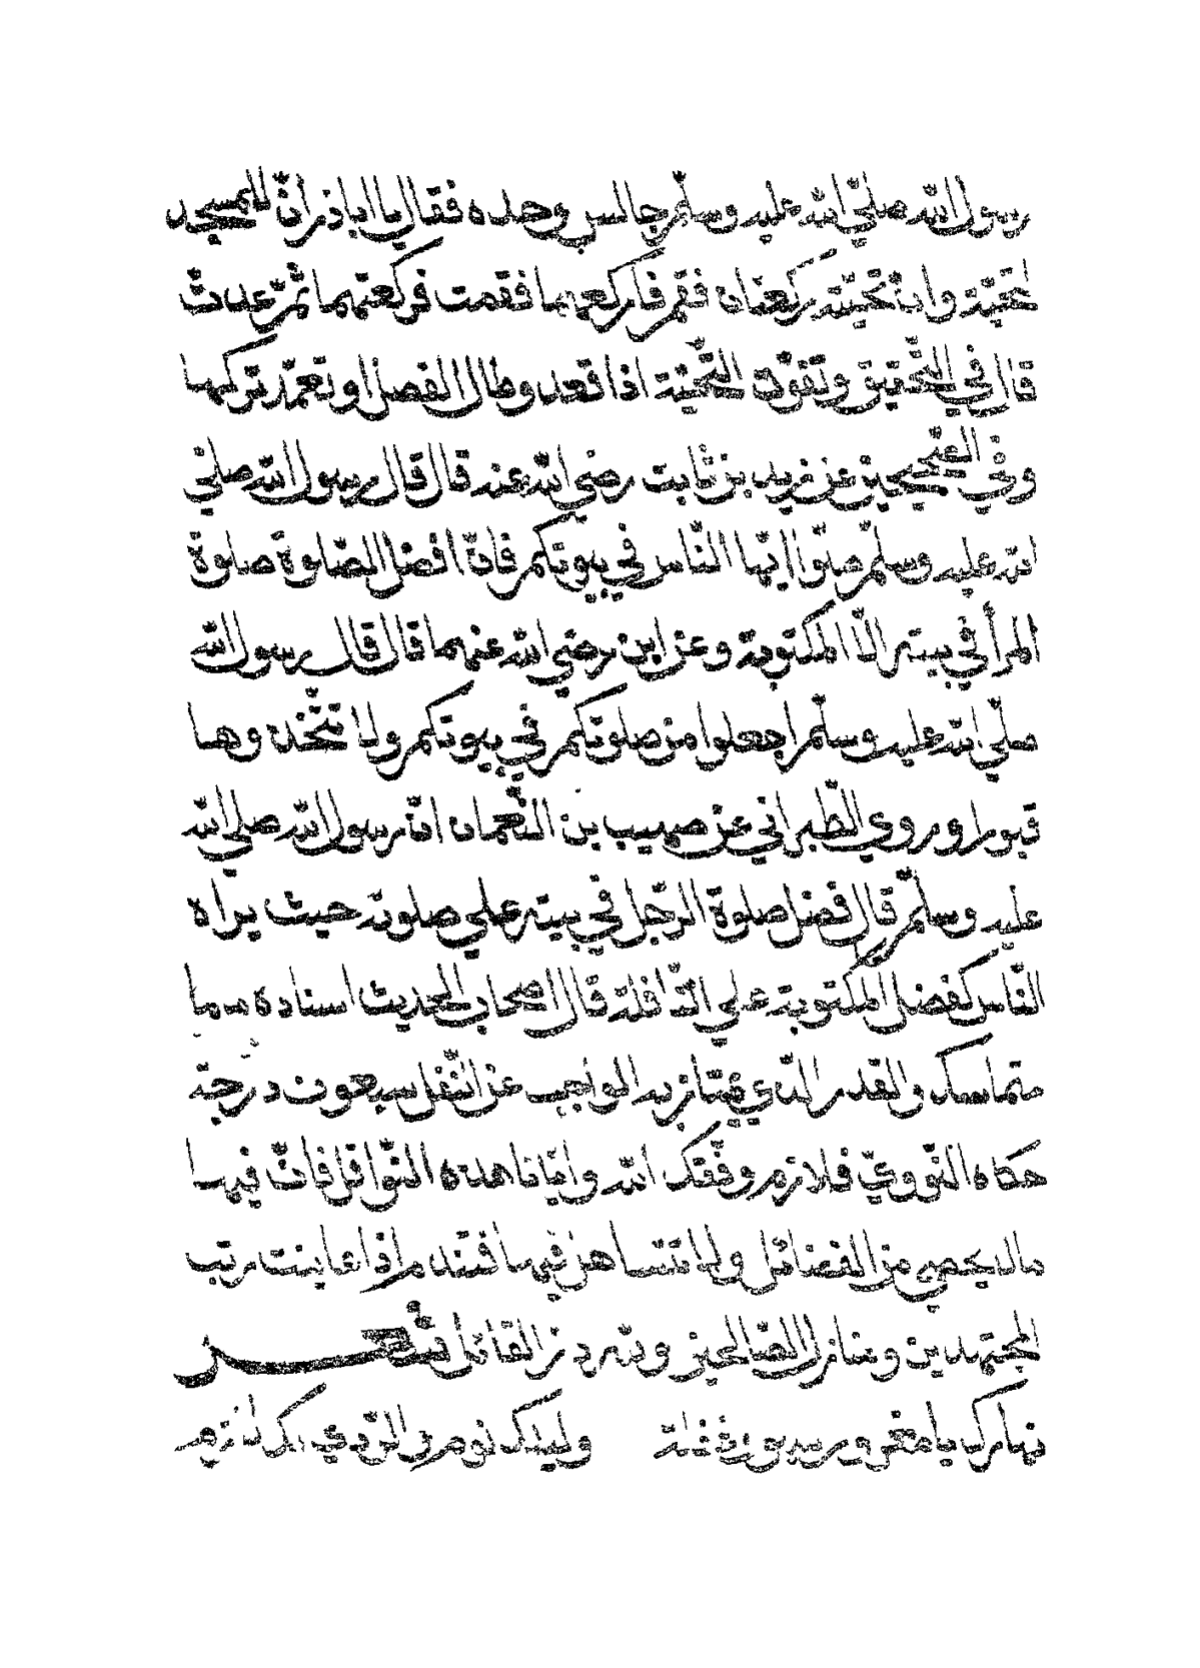 رسول الله صلّي الله عليه وسلّم جالس وحده فقال يا اباذر انّ للمسجد
تحيّة وانّ تحيّته ركعتان فقم فاركعهما فقمت فركعتهما ثمّ عدت
قال في التّحقيق وتفوت التّحيّة اذا قعد وطال الفصل او تعمّد تركها
وفي الصّحيحين عن زيد بن ثابت رضي الله عنه قال قال رسول الله صلي
الله عليه وسلّم صلّوا ايّها النّاس في بيوتكم فانّ افضل الصّلوة صلوة
المرأ في بيته الّا المكتوبة وعن ابن رضي الله عنهما قال قال رسول الله
صلّي الله عليه وسلّم اجعلوا من صلوتكم في بيوتكم ولا تتّخذوها
قبورا وروي الطّبراني عن صهيب بن النّعمان انّ رسول الله صلي الله
عليه وسلّم قال فضل صلوة الرّجل في بيته علي صلوته حيث يراه
النّاس كفضل المكتوبة علي النّافلة قال اصحاب الحديث اسناده
متماسك والقدر الّذي يمتاز به الواجب عن النّفل سبعون درجة
حكاه النّوويّ فلازم وفّقك الله وايّانا هذه النّوافل فانّ فيها
ما لا يحصي من الفضائل ولا تتساهل فيها فتندم اذا عاينت رتب
المجتهدين ومنازل الصّالحين ولله در القائل شعر
نهارك يا مغرور سهو وغفلة وليلك نوم والرّدي لك لازم